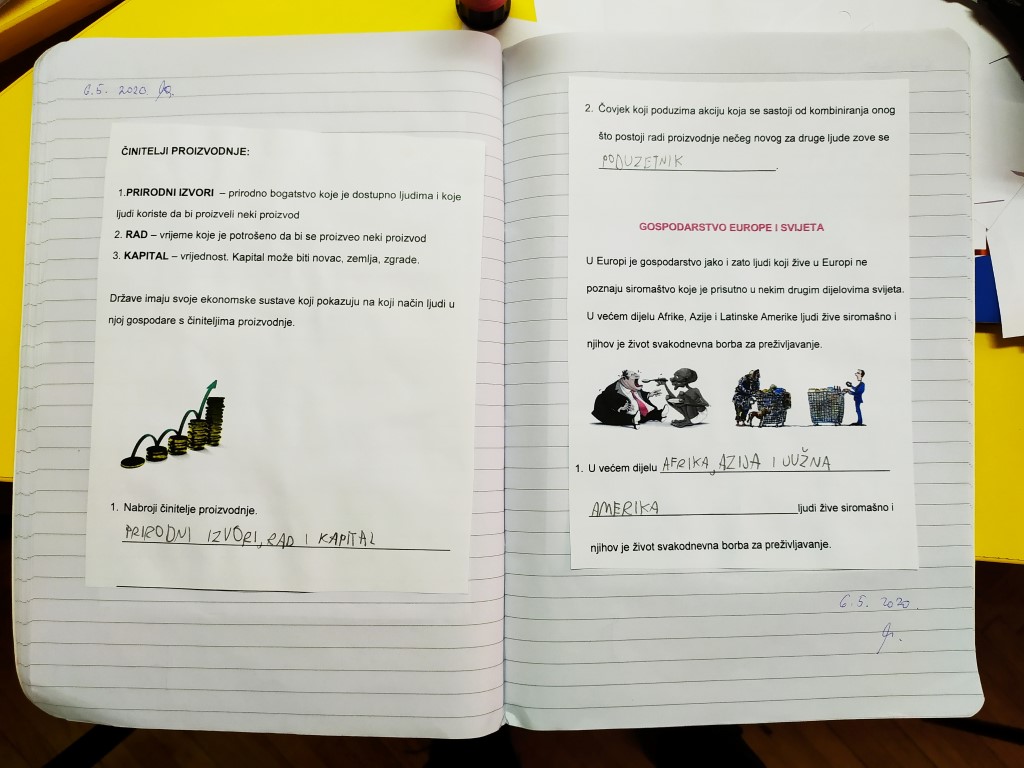 6.5. 2020.
ČINITELJI PROIZVODNJE:
1.PRIRODNI IZVORI – prirodno bogatstvo koje je dostupno ljudima i koje
ljudi koriste da bi proizveli neki proizvod
2. RAD – vrijeme koje je potrošeno da bi se proizveo neki proizvod
3. KAPITAL – vrijednost. Kapital može biti novac, zemlja, zgrade.
Države imaju svoje ekonomske sustave koji pokazuju na koji način ljudi u
njoj gospodare s činiteljima proizvodnje.
1. Nabroji činitelje proizvodnje.
PRIRODNI IZVORI, RAD I KAPITAL
2. Čovjek koji poduzima akciju koja se sastoji od kombiniranja onog
što postoji radi proizvodnje nečeg novog za druge ljude zove se
PODUZETNIK.
GOSPODARSTVO EUROPE I SVIJETA
U Europi je gospodarstvo jako i zato ljudi koji žive u Europi ne
poznaju siromaštvo koje je prisutno u nekim drugim dijelovima svijeta.
U većem dijelu Afrike, Azije i Latinske Amerike ljudi žive siromašno i
njihov je život svakodnevna borba za preživljavanje.
1. U većem dijelu AFRIKA, AZIJA I JUŽNA
AMERIKA ljudi žive siromašno i
njihov je život svakodnevna borba za preživljavanje.
6.5. 2020.